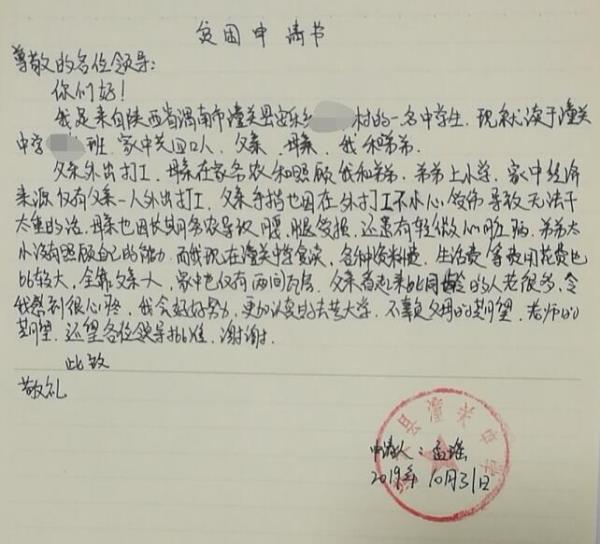 贫困申请书
尊敬的各位领导:
你们好!
我是来自陕西省渭南市潼关县安乐乡 村的一名中学生.现就读于潼关
中学 班.家中共四口人、父亲、母亲、我和弟弟.
父亲外出打工、母亲在家务农和照顾我和弟弟.弟弟上小学.家中经济
来源仅有父亲一人外出打工.父亲手指也因在外打工不小心致伤导致无法干
太重的活.母亲也因长期务农导致腰、腿受损,还患有轻微心脏病.弟弟太
小没有照顾自己的能力.而我现在潼关中学就读,各种资料费、生活费等费用花费也
比较大,全靠父亲一人,家中也仅有两间瓦房.父亲看起来比同龄的人老很多,令
我感到很心疼,我会好好努力,更加认真的去考大学.不辜负父母的期望.老师的
期望.还望各位领导批准,谢谢.
此致
敬礼
县潼关中学
申请人:孟瑶
2019年10月31日